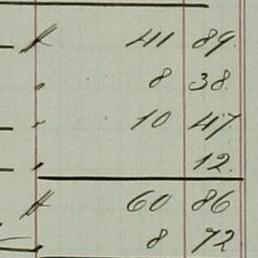 41 89.
8 38.
10 47
12.
60 86
8 72